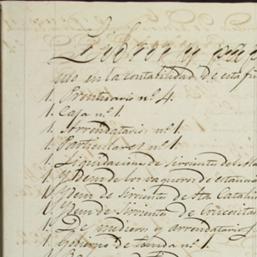 Libros y pap
uso en la contabilidad de esta fi
1. Prontuario nº 4.
1. Caja nº 1.
1. Arrendatarios nº 1.
1. Particulares nº 1.
1. Liquidacion de Sirvientes de
1. Ydem de los vaqueros de
1. Ydem de Sirvientes de Sta Catali
1. Ydem de Sirvientes de
1. De medieros y arrendatarios
1. nº 1.